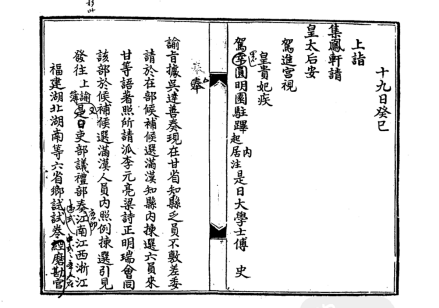 十九日癸巳
上詣
集鳳軒請
皇太后安
駕進宮視
皇貴妃疾
駕圓明園駐蹕
內
起居注是日大學士傅 史
奉
諭旨據吳達善奏現在甘省知縣乏員不敷差委
請於在部候補候選滿漢知縣內揀選六員來
甘等語著照所請派李元亮梁詩正明瑞會同
該部於候補候選滿漢人員內照例揀選引見
發往上諭是日吏部議禮部奏江南江西浙江
簿
福建湖北湖南等六省鄉試試卷經磨勘官